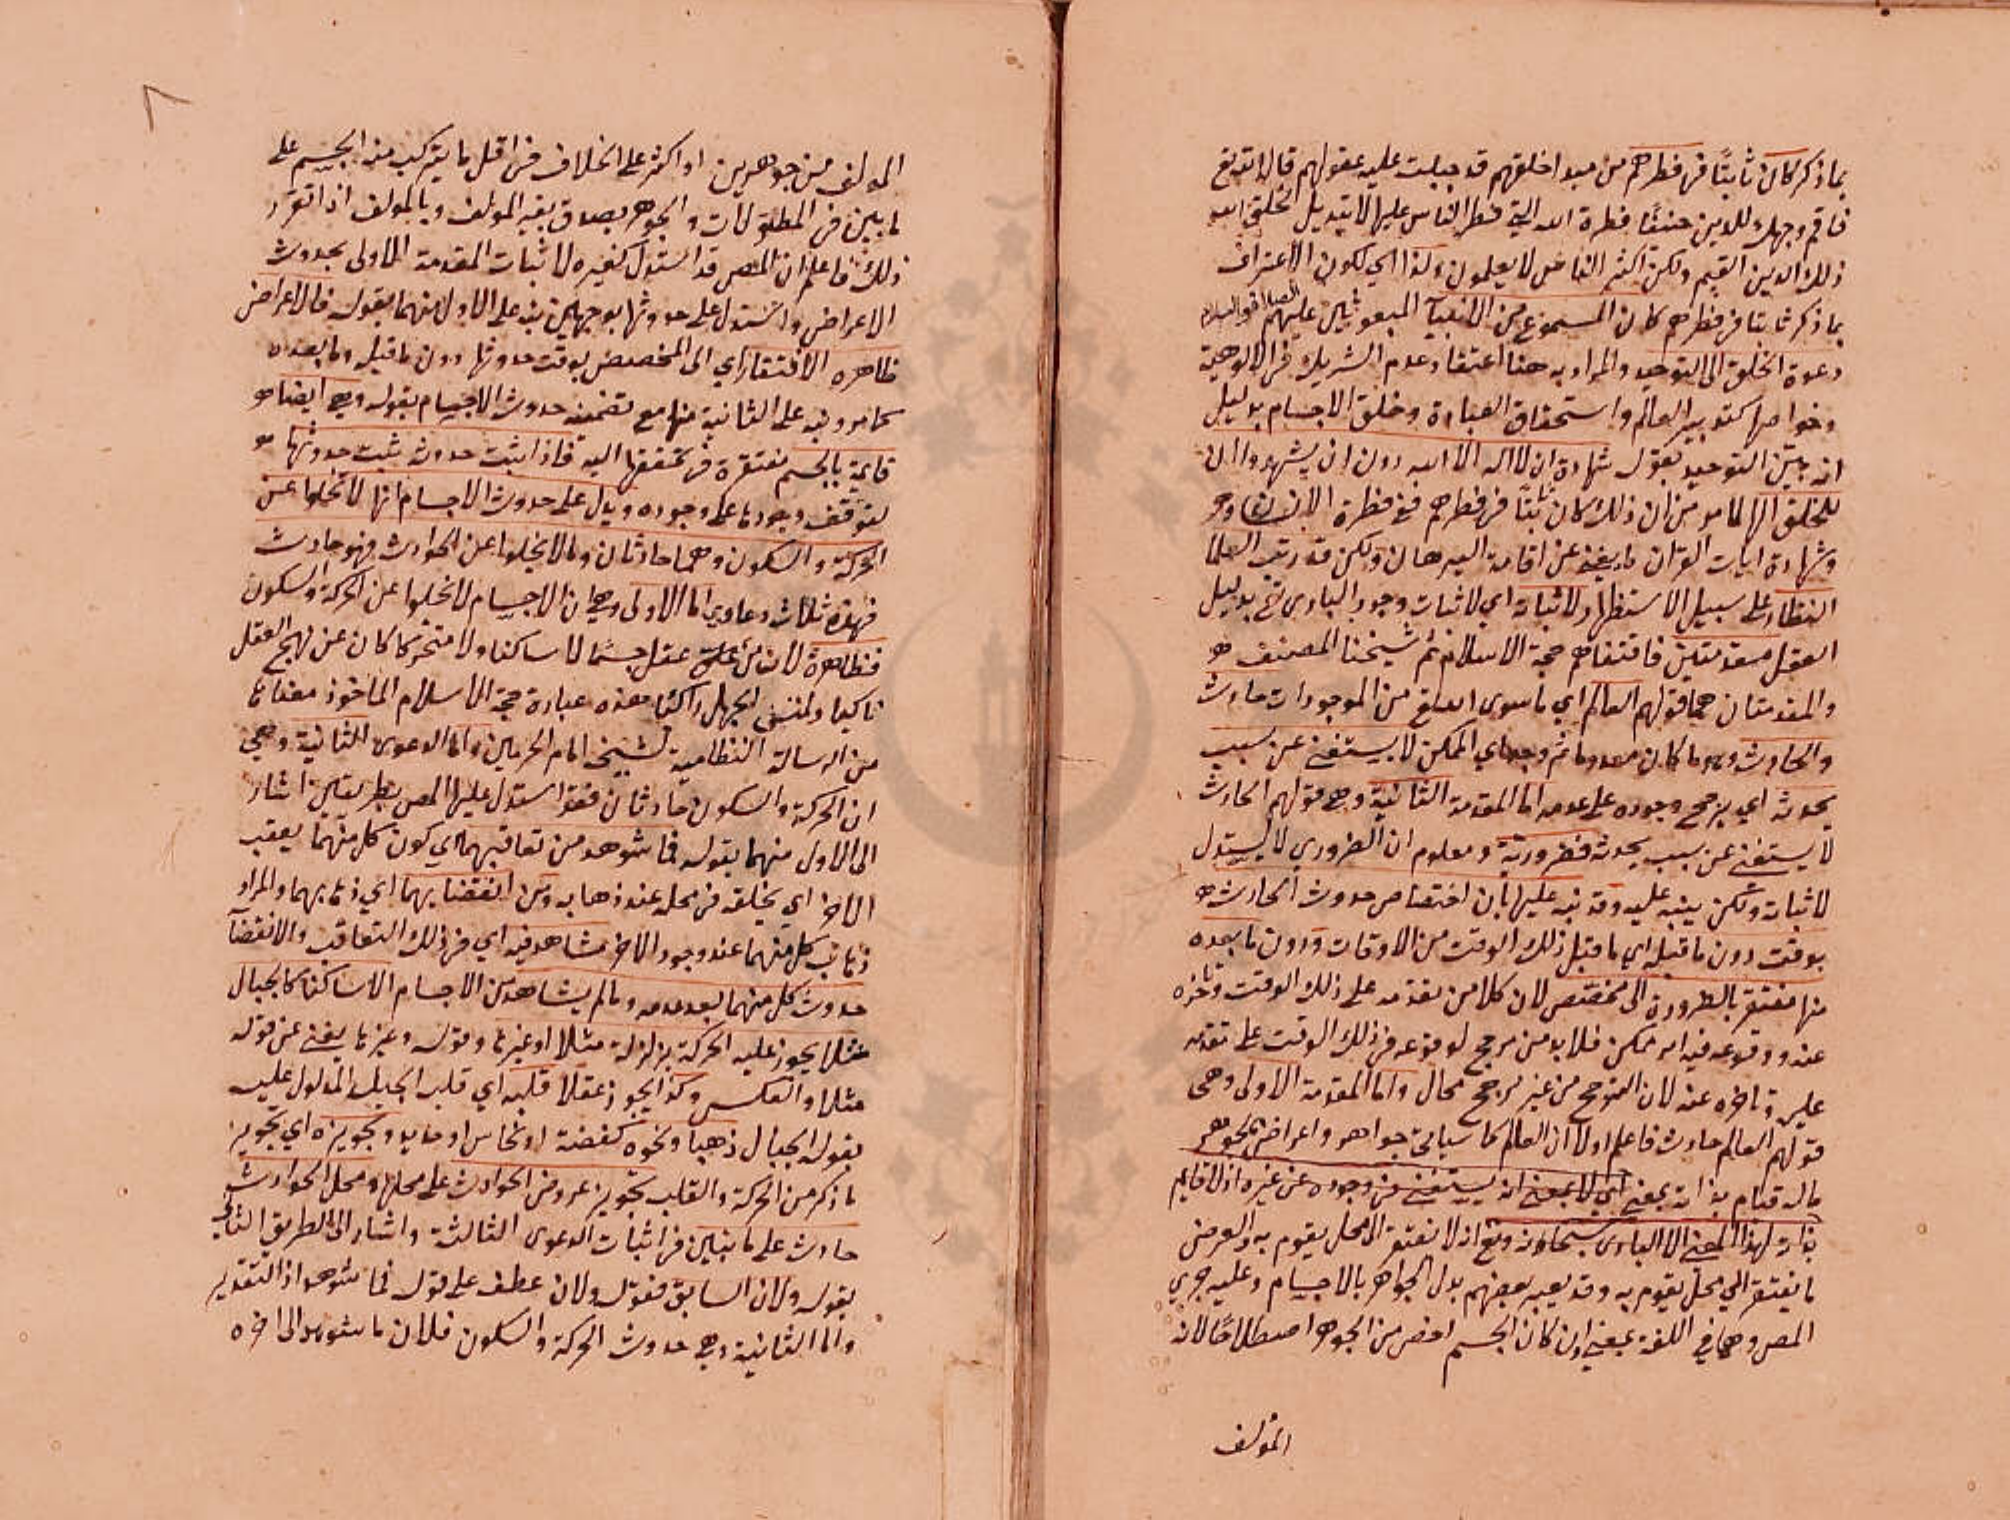 بما ذكر كان ثابتًا في فطرهم من مبدا خلقهم قد جبلت عليه عقولهم قال الله تع
فاقم وجهك للدين حنيفًا فطرة الله التي فطر الناس عليها لا تبديل لخلق الله
ذلك الدين القيم ولكن اكثر الناس لا يعلمون ولذا اي لكون الاعتراف
بما ذكر ثابتا في فطرهم كان المسموع من الانبيآ المبعوثين عليهم الصلاة والسلام
دعوة الخلق الى التوحيد والمراد به هنا اعتقاد عدم الشريك في الالوهية
وخواصها كتدبير العالم واستحقاق العبادة وخلق الاجسام بدليل
انه بين التوحيد بقوله شهادة ان لا اله الا الله دون ان يشهدوا ان
للخلق الها لما مر من ان ذلك كان ثابتًا في فطرهم ففي فطرة الانسان
وشهادة ايات القران ما يغني عن اقامة البرهان ولكن قد رتب العلما
النظار على سبيل الاستظهار لاثباته اي لاثبات وجود الباري تع بدليل
العقل مقدمتين فاقتفاهم حجة الاسلام ثم شيخنا المصنف
والمقدمتان هما قولهم العالم اي ما سوى الله تع من الموجودات حادث
والحادث وهو ما كان معدوما ثم وجد اي الممكن لا يستغني عن سبب
يحدثه اي يرجح وجوده على عدمه اما المقدمة الثانية وهي قولهم الحادث
لا يستغني عن سبب يحدثه فضرورية ومعلوم ان الضروري لا يستدل
لاثباته ولكن ينبه عليه وقد نبه عليها بان اختصاص حدوث الحادث
بوقت دون ما قبله اي ما قبل ذلك الوقت من الاوقات ودون ما بعده
منها مفتقر بالضرورة الى مخصص لان كلا من تقدمه على ذلك الوقت وتاخره
عنه ووقوعه فيه امر ممكن فلا بد من مرجح لوقوعه في ذلك الوقت على تقدمه
عليه وتاخره عنه لان الترجح من غير مرجح محال واما المقدمة الاولى وهي
قولهم العالم حادث فاعلم اولا ان العالم كما سياتي جواهر واعراض فالجوهر
ما له قيام بذاته بمعنى اي لا بمعنى انه يستغني في وجوده عن غيره اذ لا قايم
بذاته لهذا المعنى الا الباري سبحانه وتع انه لا يفتقر الى محل يقوم به والعرض
ما يفتقر الى محل يقوم به وقد يعبر بعضهم بدل الجواهر بالاجسام وعليه جرى
المص وهما في اللغة بمعنى وان كان الجسم اخص من الجوهر اصطلاحًا لانه
المؤلف
المولف من جوهرين او اكثر على الخلاف في اقل ما يتركب منه الجسم على
ما بين في المطولات والجوهر يصدق بغير المولف وبالمولف اذا تقرر
ذلك فاعلم ان المص قد استدل كغيره لاثبات المقدمة الاولى بحدوث
الاعراض واستدل على حدوثها بوجهين نبه على الاول منهما بقوله فالاعراض
ظاهره الافتقار اي الى المخصص بوقت حدوثها دون ما قبله وما بعده
كما مر ونبه على الثانية منها مع تضمنه حدوث الاجسام بقوله وهي ايضا
قايمة بالجسم مفتقرة في تحققها اليه فاذا ثبت حدوثه ثبت حدوثها
لتوقف وجودها على وجوده ويدل على حدوث الاجسام انها لا تخلوا عن
الحركة والسكون وهما حادثان وما لا يخلوا عن الحوادث فهو حادث
فهذه ثلاث دعاوي اما الاولى وهي ان الاجسام لا تخلوا عن الحركة والسكون
فظاهرة لان من عقل جسما لا ساكنا ولا متحركا كان عن نهج العقل
ناكبا ولمتن الجهل راكبًا هذه عبارة حجة الاسلام الماخوذ معناها
من الرسالة النظامية لشيخه امام الحرمين واما الدعوى الثانية وهي
ان الحركة والسكون حادثان فقد استدل عليها المص بطريقين اشار
الى الاول منهما بقوله فما شوهد من تعاقبهما اي كون كل منهما يعقب
الاخر اي يخلفه في محله عند ذهابه ومن انقضايهما اي ذهابهما والمراد
ذهاب كل منهما عند وجود الاخر مشاهد فيه اي في ذلك التعاقب والانقضآ
حدوث كل منهما بعد عدمه وما لم يشاهد من الاجسام الا ساكنا كالجبال
مثلا يجوز عليه الحركة بزلزلة مثلا او غيرها وقوله وغيرها يغني عن قوله
مثلا والعكس وكذا يجوز عقلا قلبه اي قلب الجبل المدلول عليه
بقوله الجبال ذهبا ونحوه كفضة او نحاس او حديد وتجويزه اي تجويز
ما ذكر من الحركة والقلب تجويز عروض الحوادث على محلها ومحل الحوادث
حادث على ما تبين في اثبات الدعوى الثالثة واشار الى الطريق الثاني
بقوله ولان السابق فقوله ولان عطف على قوله فما شوهد اذ التقدير
واما الثانية وهي حدوث الحركة والسكون فلان ما شوهد الى اخره